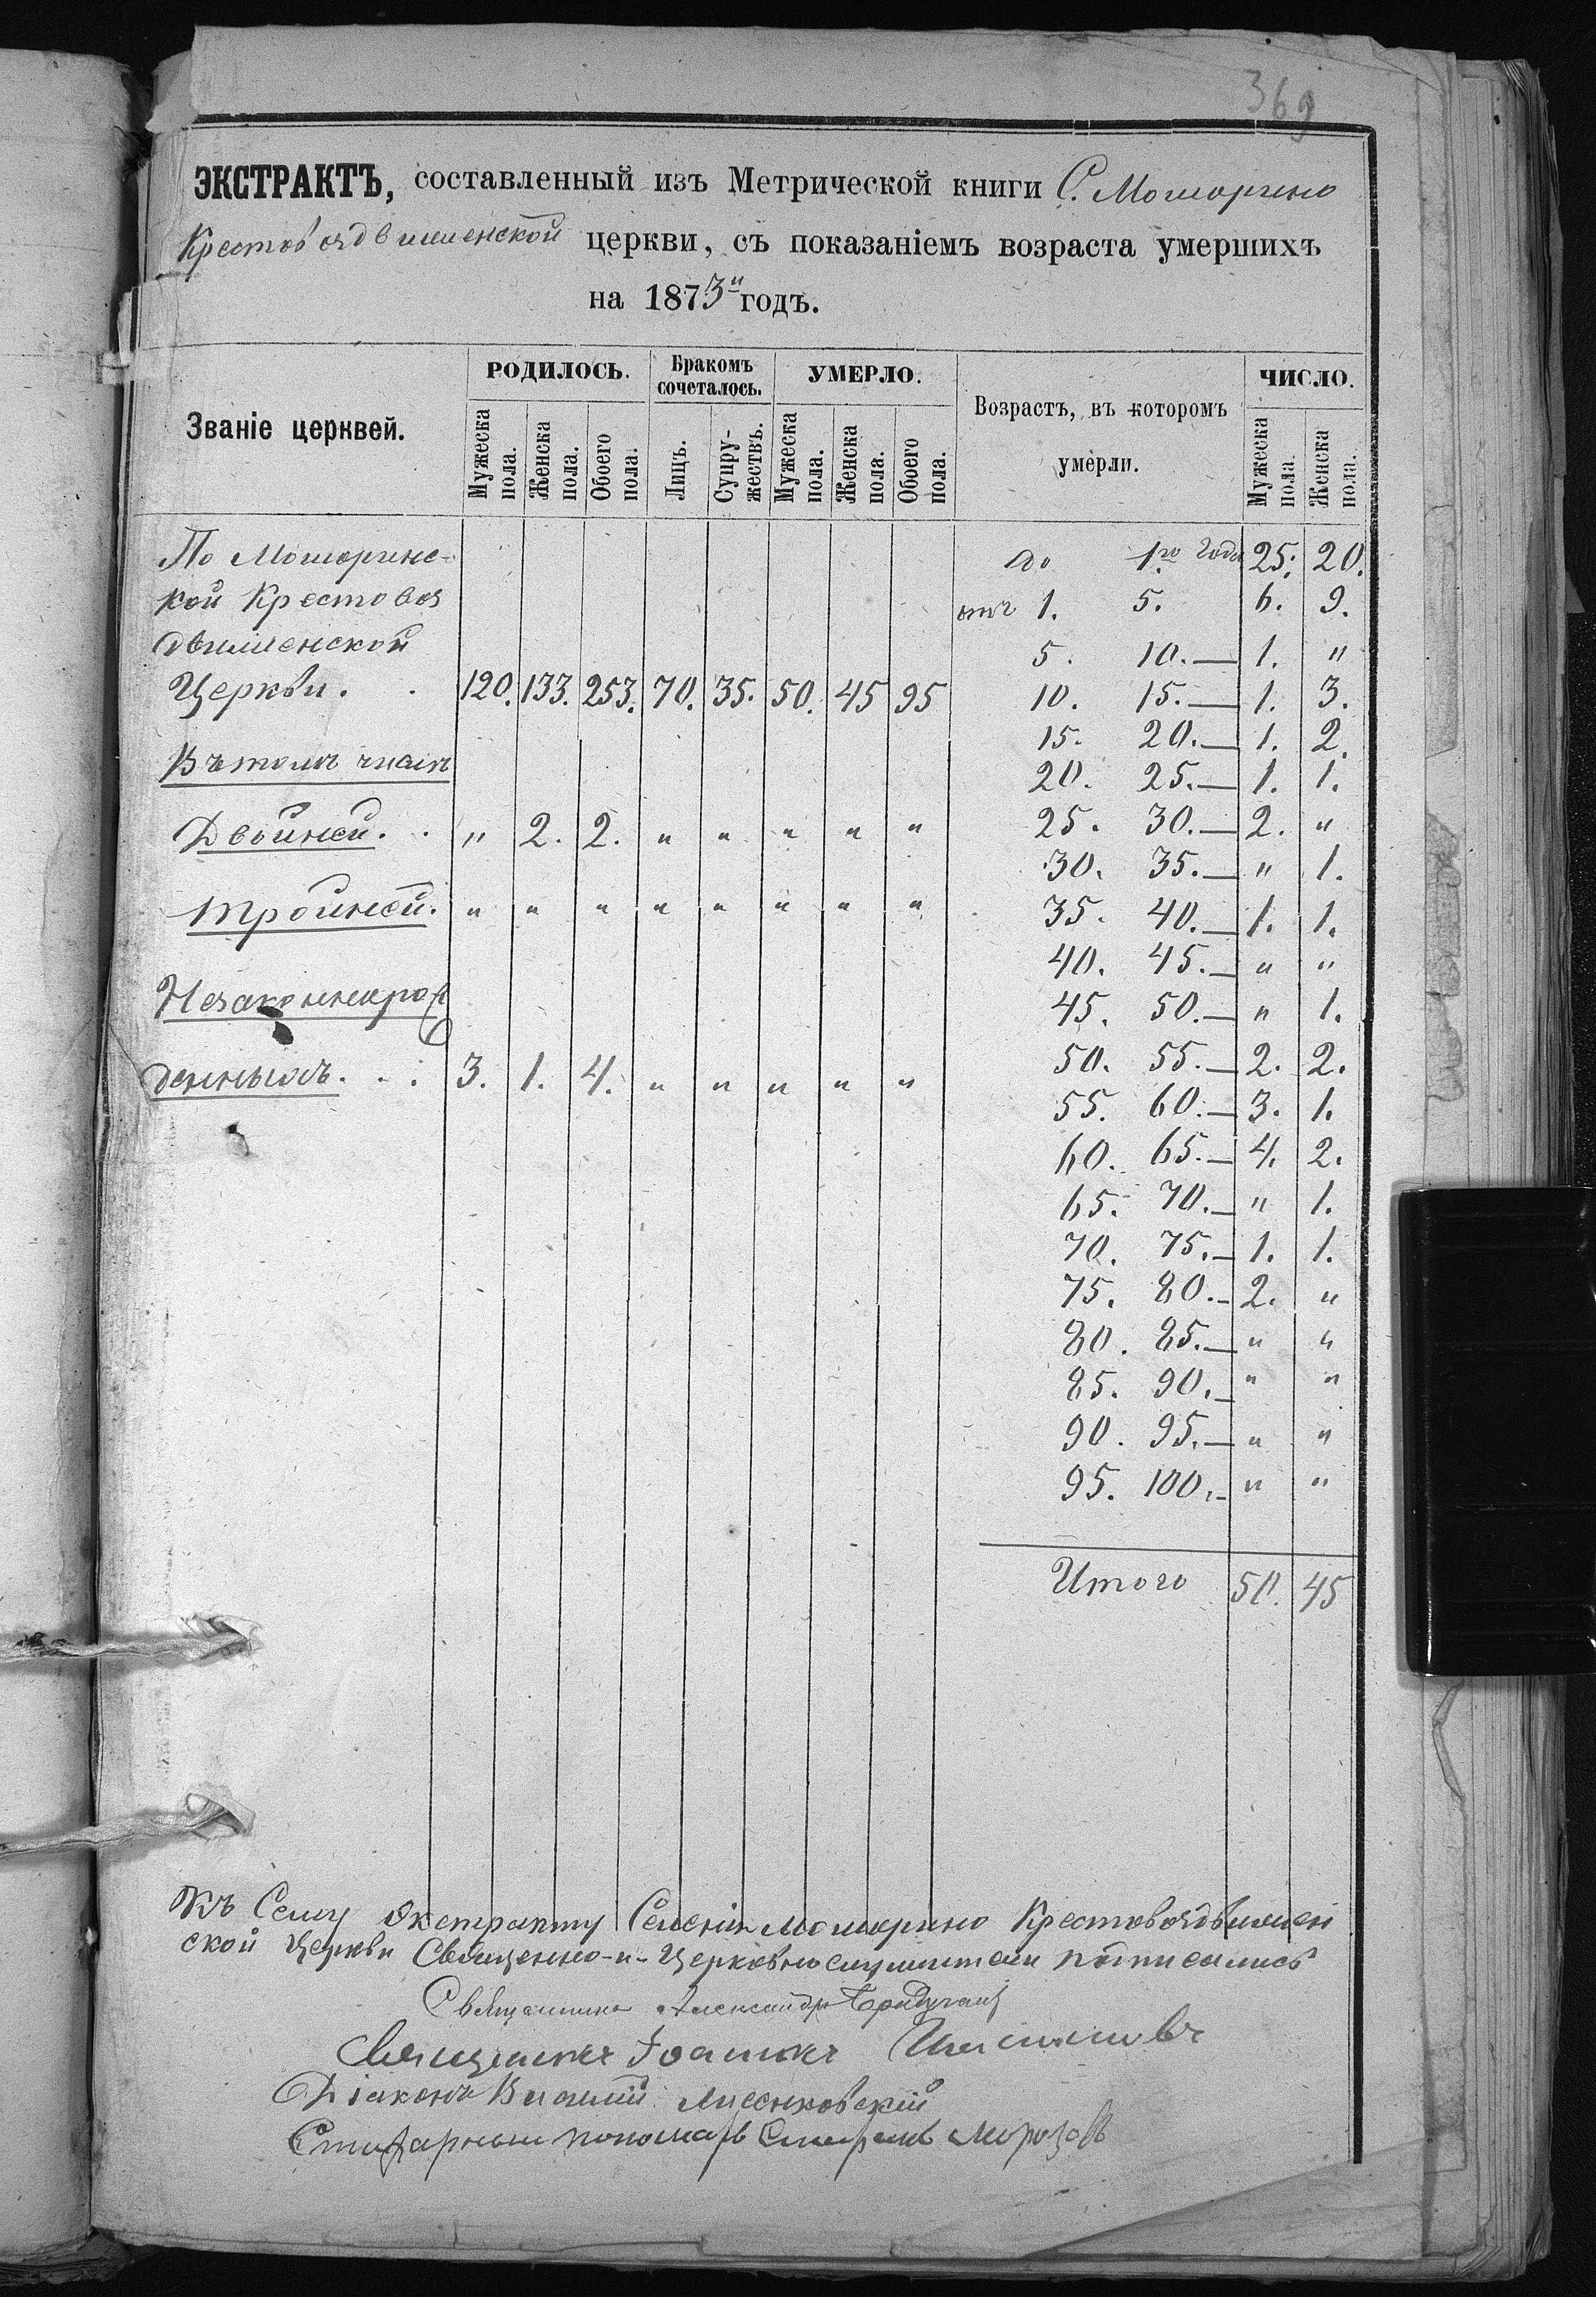 369
ЭКСТРАКТЪ, составленный изъ Метрической книги С. Мошорино
Крестовоздвиженской церкви, съ показаніемъ возраста умершихъ
на 1873й годъ.
Званіе церквей. РОДИЛОСЬ. Бракомъ сочеталось. УМЕРЛО. Возрастъ, въ которомъ умерли. ЧИСЛО.
Мужеска пола. Женска пола. Обоего пола. Лицъ. Супружествъ. Мужеска пола. Женска пола. Обоего пола. Мужеска пола. Женска пола.
По Мошоринс-
кой Крестовоз
движенской
Церкви. . 120. 133. 253. 70. 35. 50. 45 95
Въ томъ числѣ
Двойней. . " 2. 2. " " " " "
Тройней. " " " " " " " "
Незаконнорож
денныхъ. . . 3. 1. 4. " " " " "
до 1го года 25. 20.
отъ 1. 5. 6. 9.
5. 10. — 1. "
10. 15. — 1. 3.
15. 20. — 1. 2.
20. 25. — 1. 1.
25. 30. — 2. "
30. 35. — " 1.
35. 40. — 1. 1.
40. 45. — " "
45. 50. — " 1.
50. 55. — 2. 2.
55. 60. — 3. 1.
60. 65. — 4. 2.
65. 70. — " 1.
70. 75. — 1. 1.
75. 80. — 2. "
80. 85. — " "
85. 90. — " "
90. 95. — " "
95. 100. — " "
Итого 50. 45
Къ Сему Экстракту Селенія Мошорино Крестовоздвижен
ской Церкви Священно-и-Церковнослужители подписались
Священникъ Александръ
Священникъ Іоаннъ
Діаконъ Василій
пономарь Морозовъ